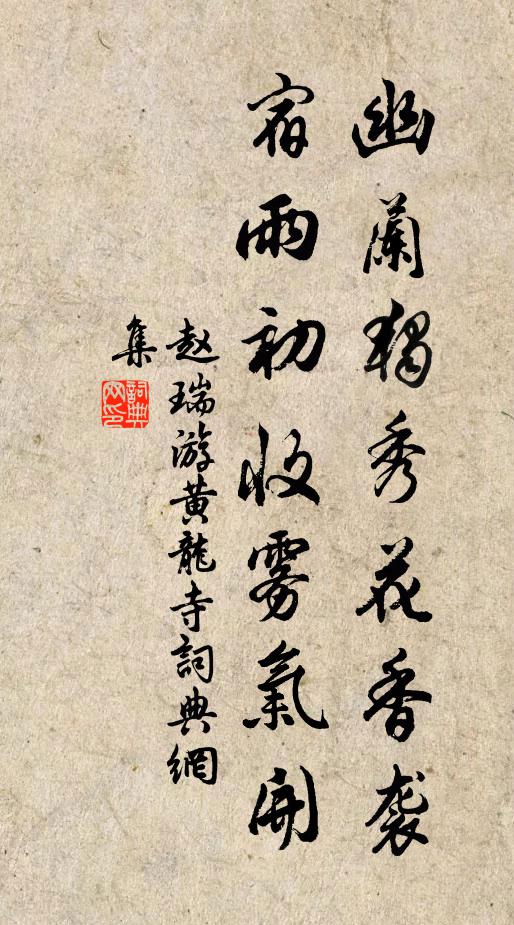 幽蘭獨秀花香袭
宿雨初收霧氣開
赵瑞游黄龍寺詞典網
集
詞典网印